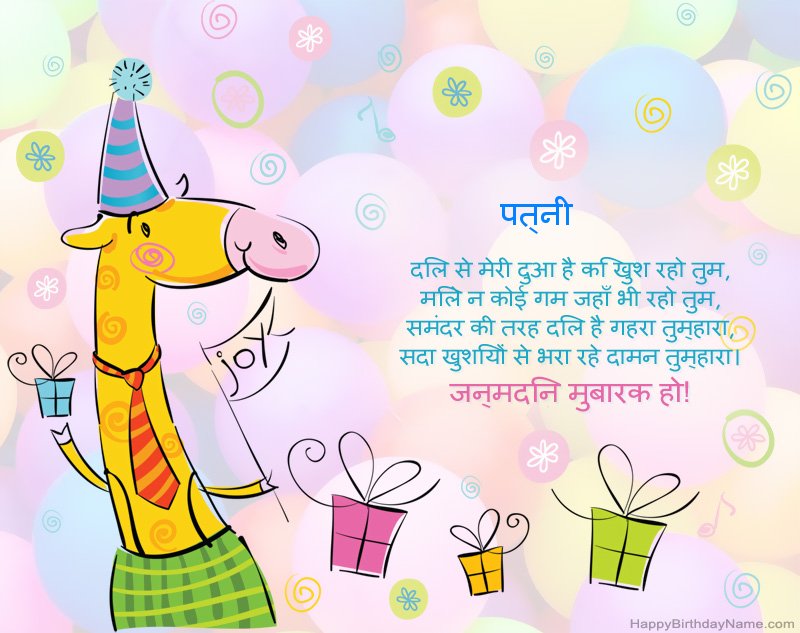 पत्नी
दिल से मेरी दुआ है कि खुश रहो तुम,
मिले न कोई गम जहाँ भी रहो तुम,
समंदर की तरह दिल है गहरा तुम्हारा,
सदा खुशियों से भरा रहे दामन तुम्हारा।
जन्मदिन मुबारक हो!
joy
HappyBirthdayName.com